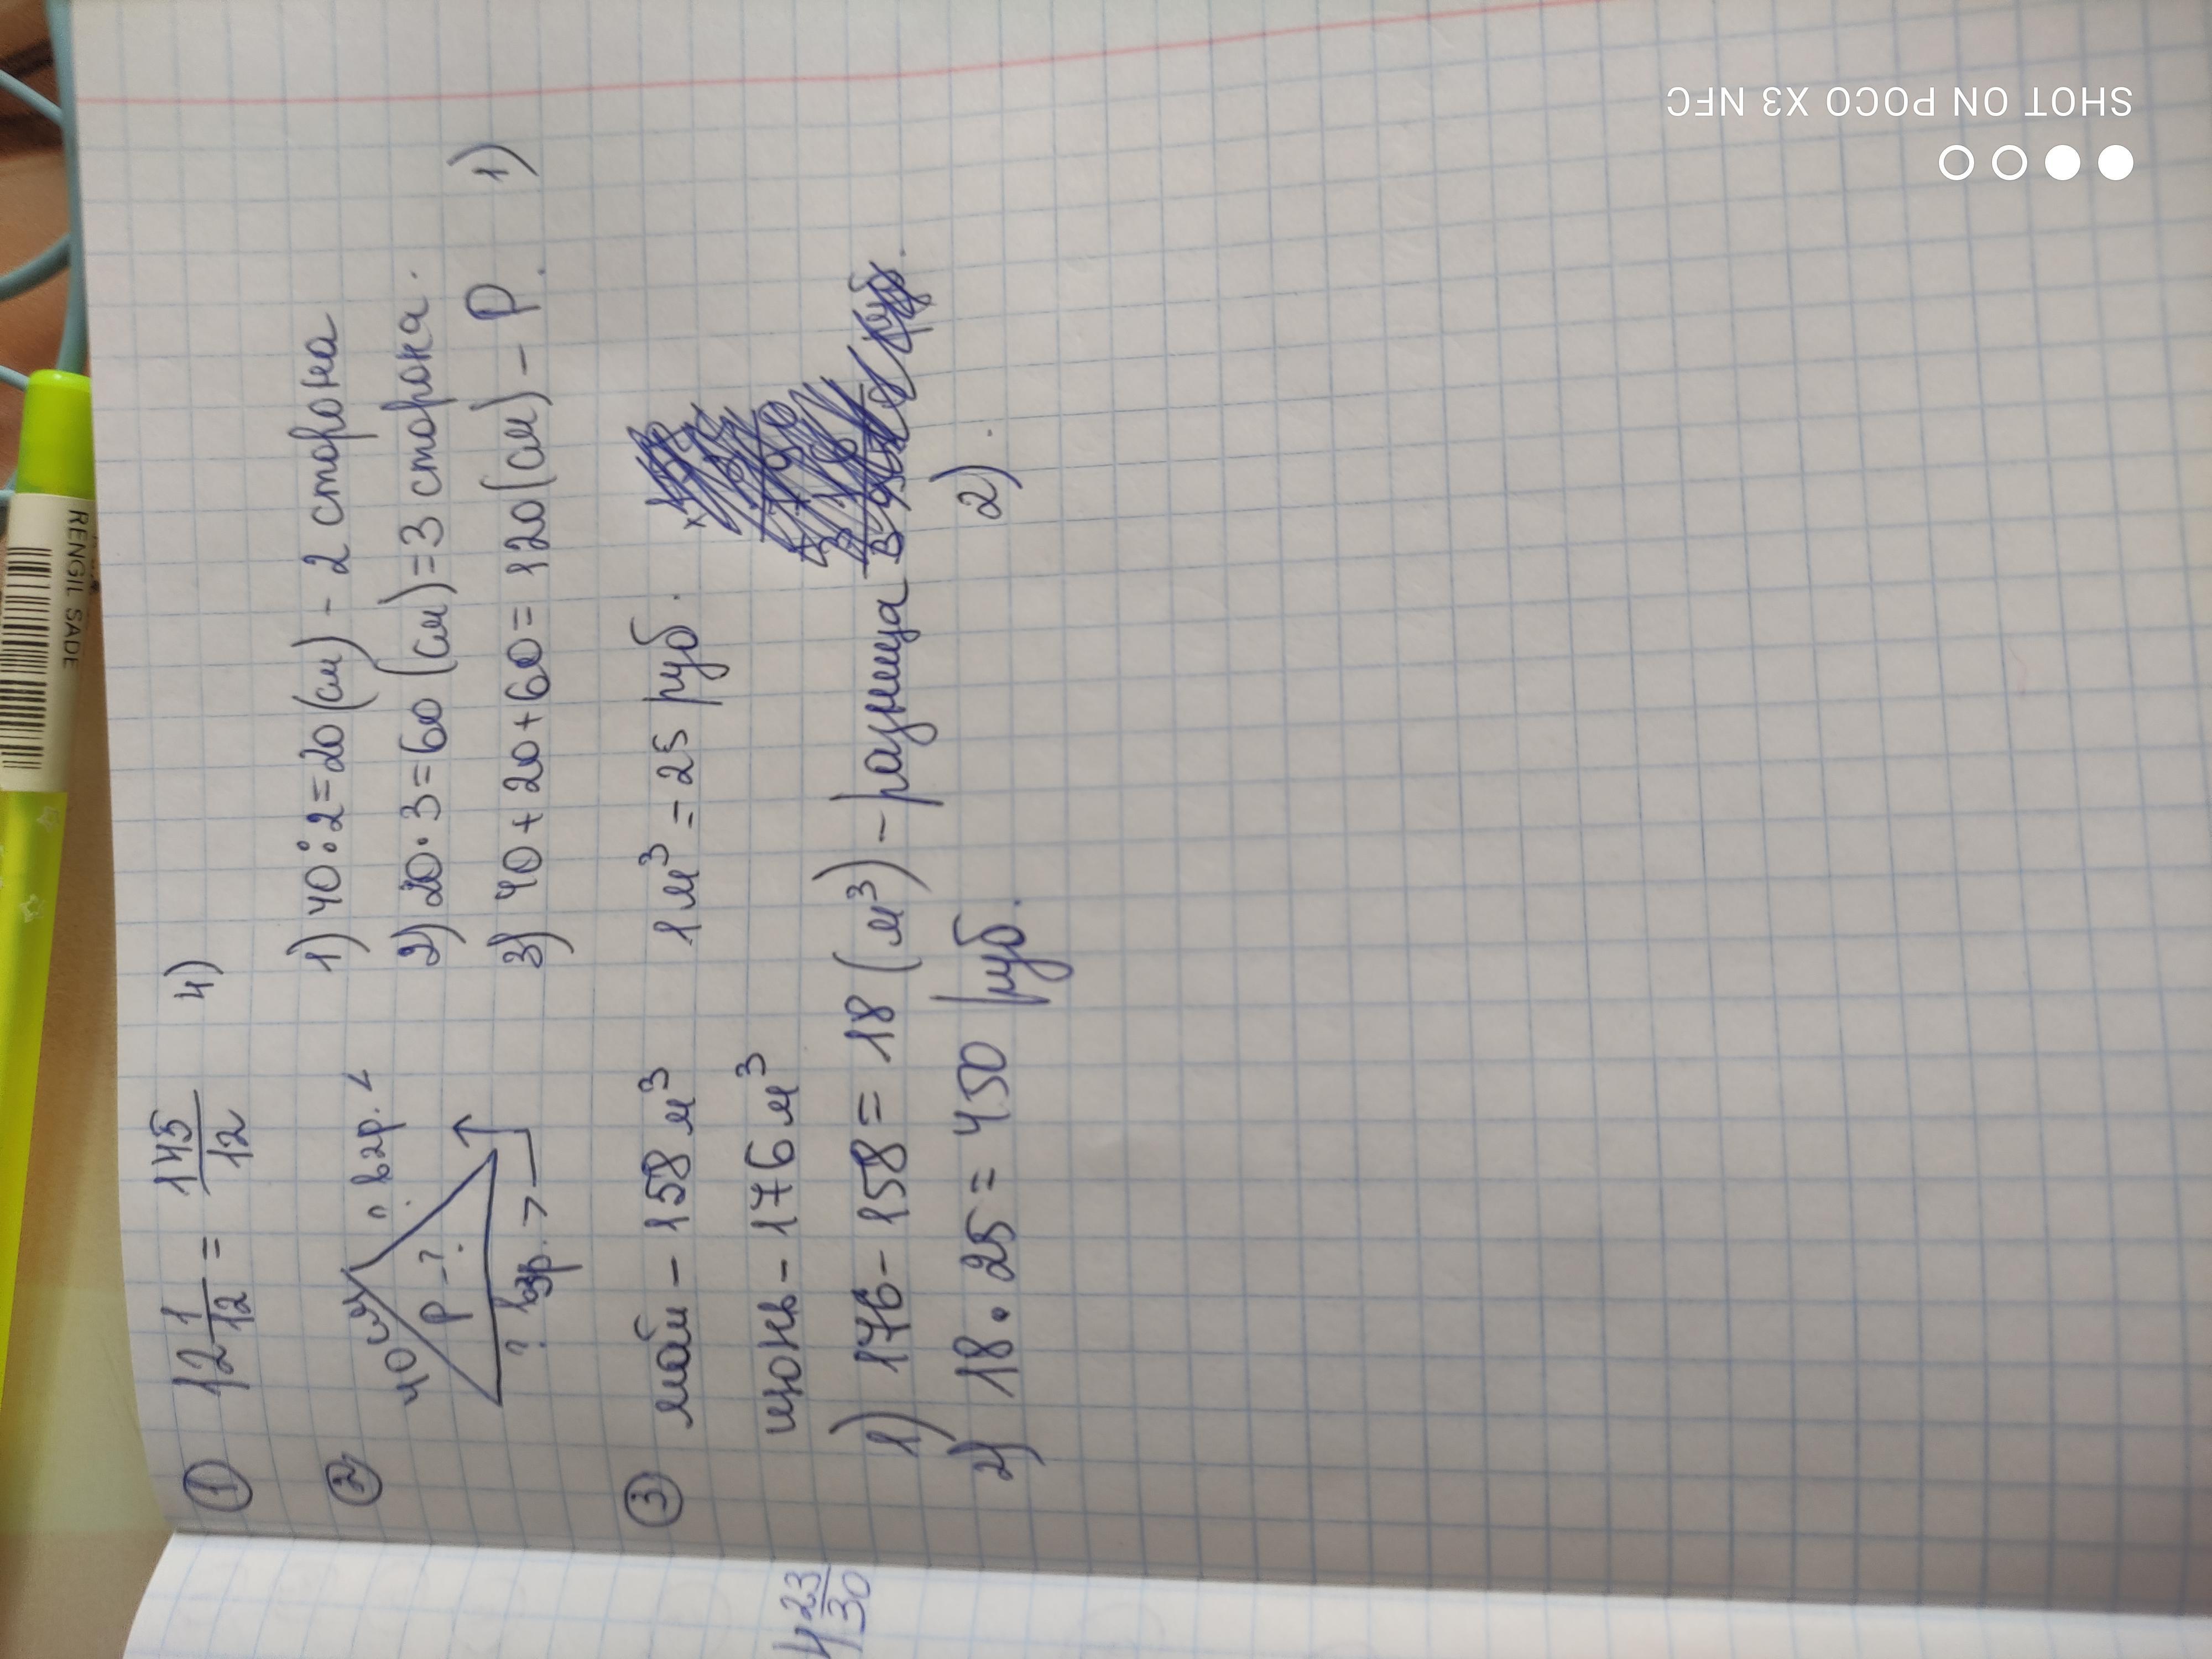 ① 12 1/12 = 145/12 4)
② 40 см ? в 2р. <
P-?
? в 3р. >
1) 40:2=20(см) - 2 сторона
2) 20·3=60(см)=3 сторона.
3) 40+20+60=120(см) - P. 1)
③ май - 158 м³ 1м³ = 25 руб.
июнь - 176 м³
1) 176-158 = 18 (м³) - разница
2) 18·25 = 450 руб. 2)
4 23/30
RENGIL SADE
SHOT ON POCO X3 NFC